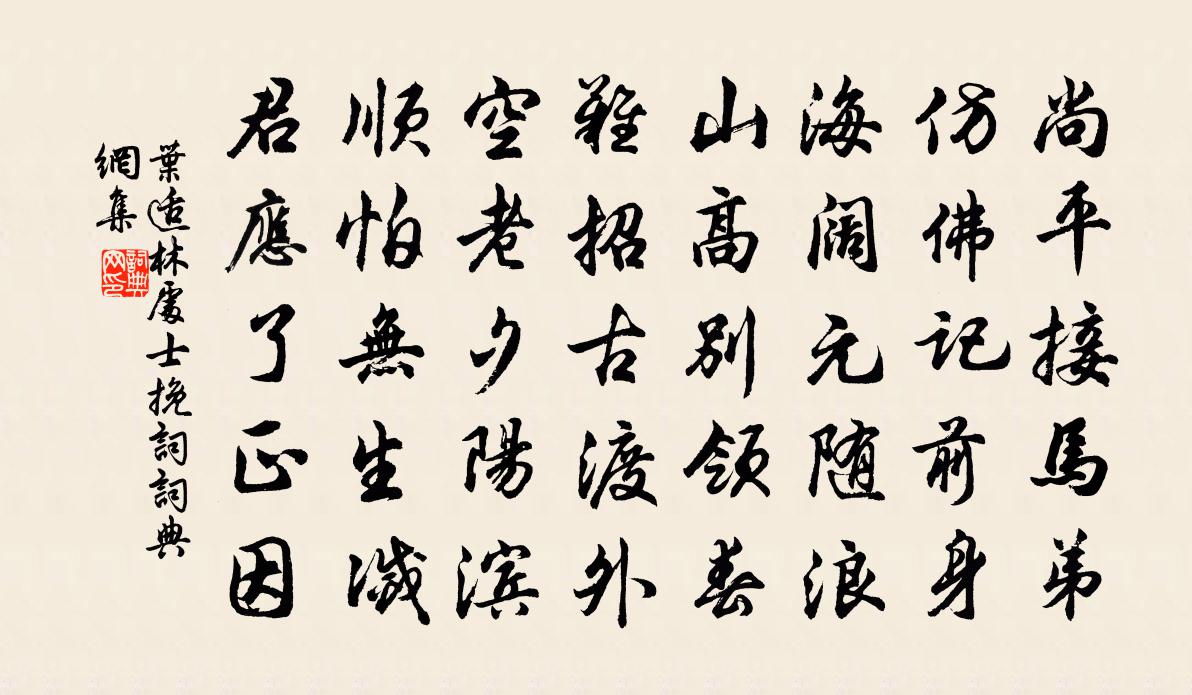 尚平接馬弟
仿佛記前身
海阔元随浪
山高別領春
難招古渡外
空老夕陽滨
順怕無生滅
君應了正因
葉适林處士挽詞詞典
網集
詞典网印